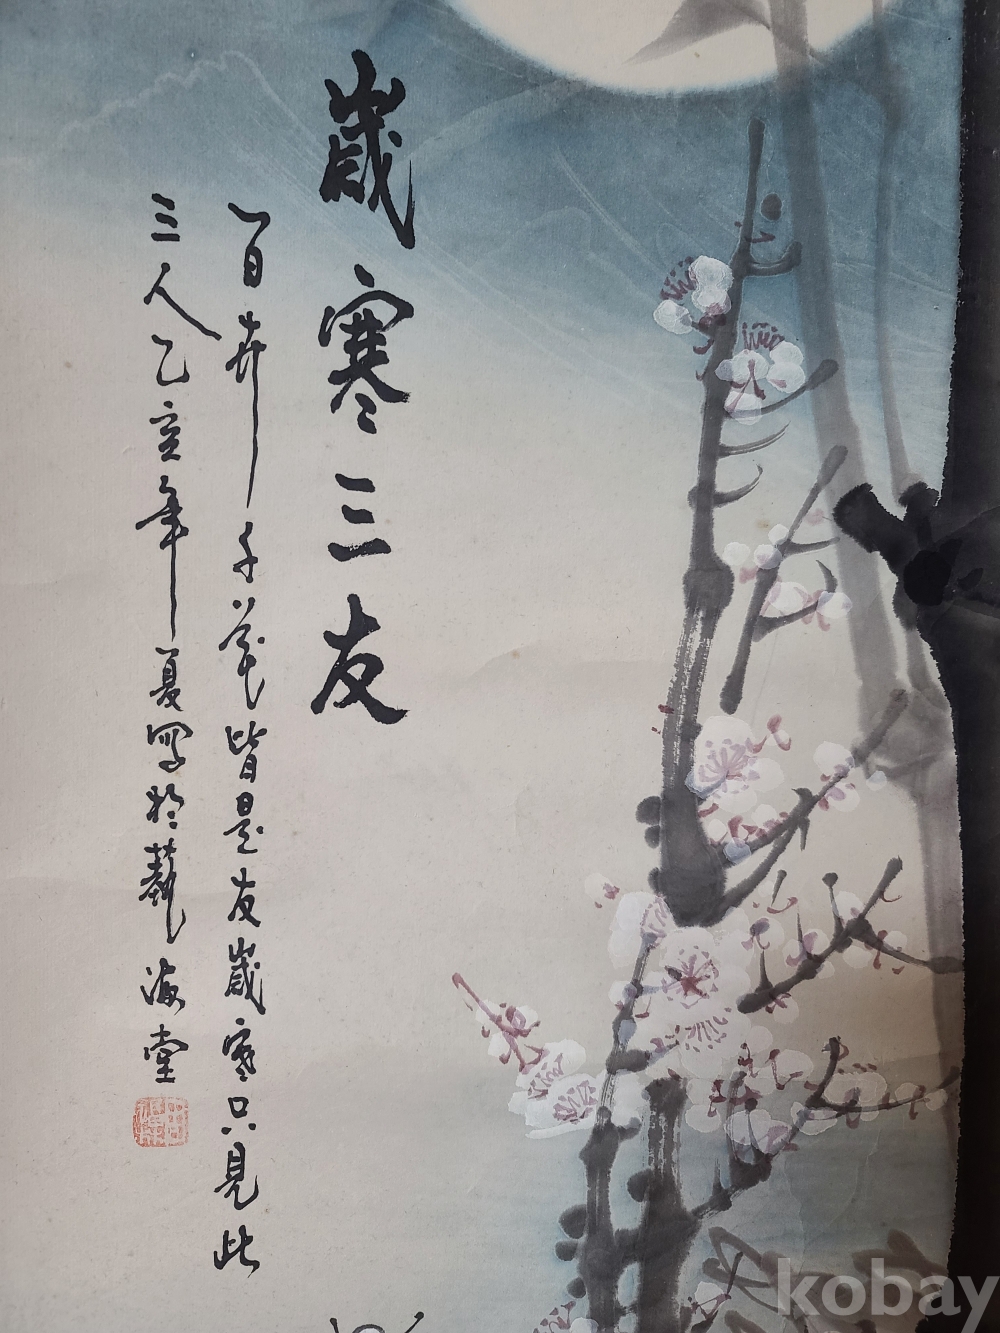 歲寒三友
百卉千花皆是友歲寒只見此
三人乙亥年夏寫於藝海堂
kobay